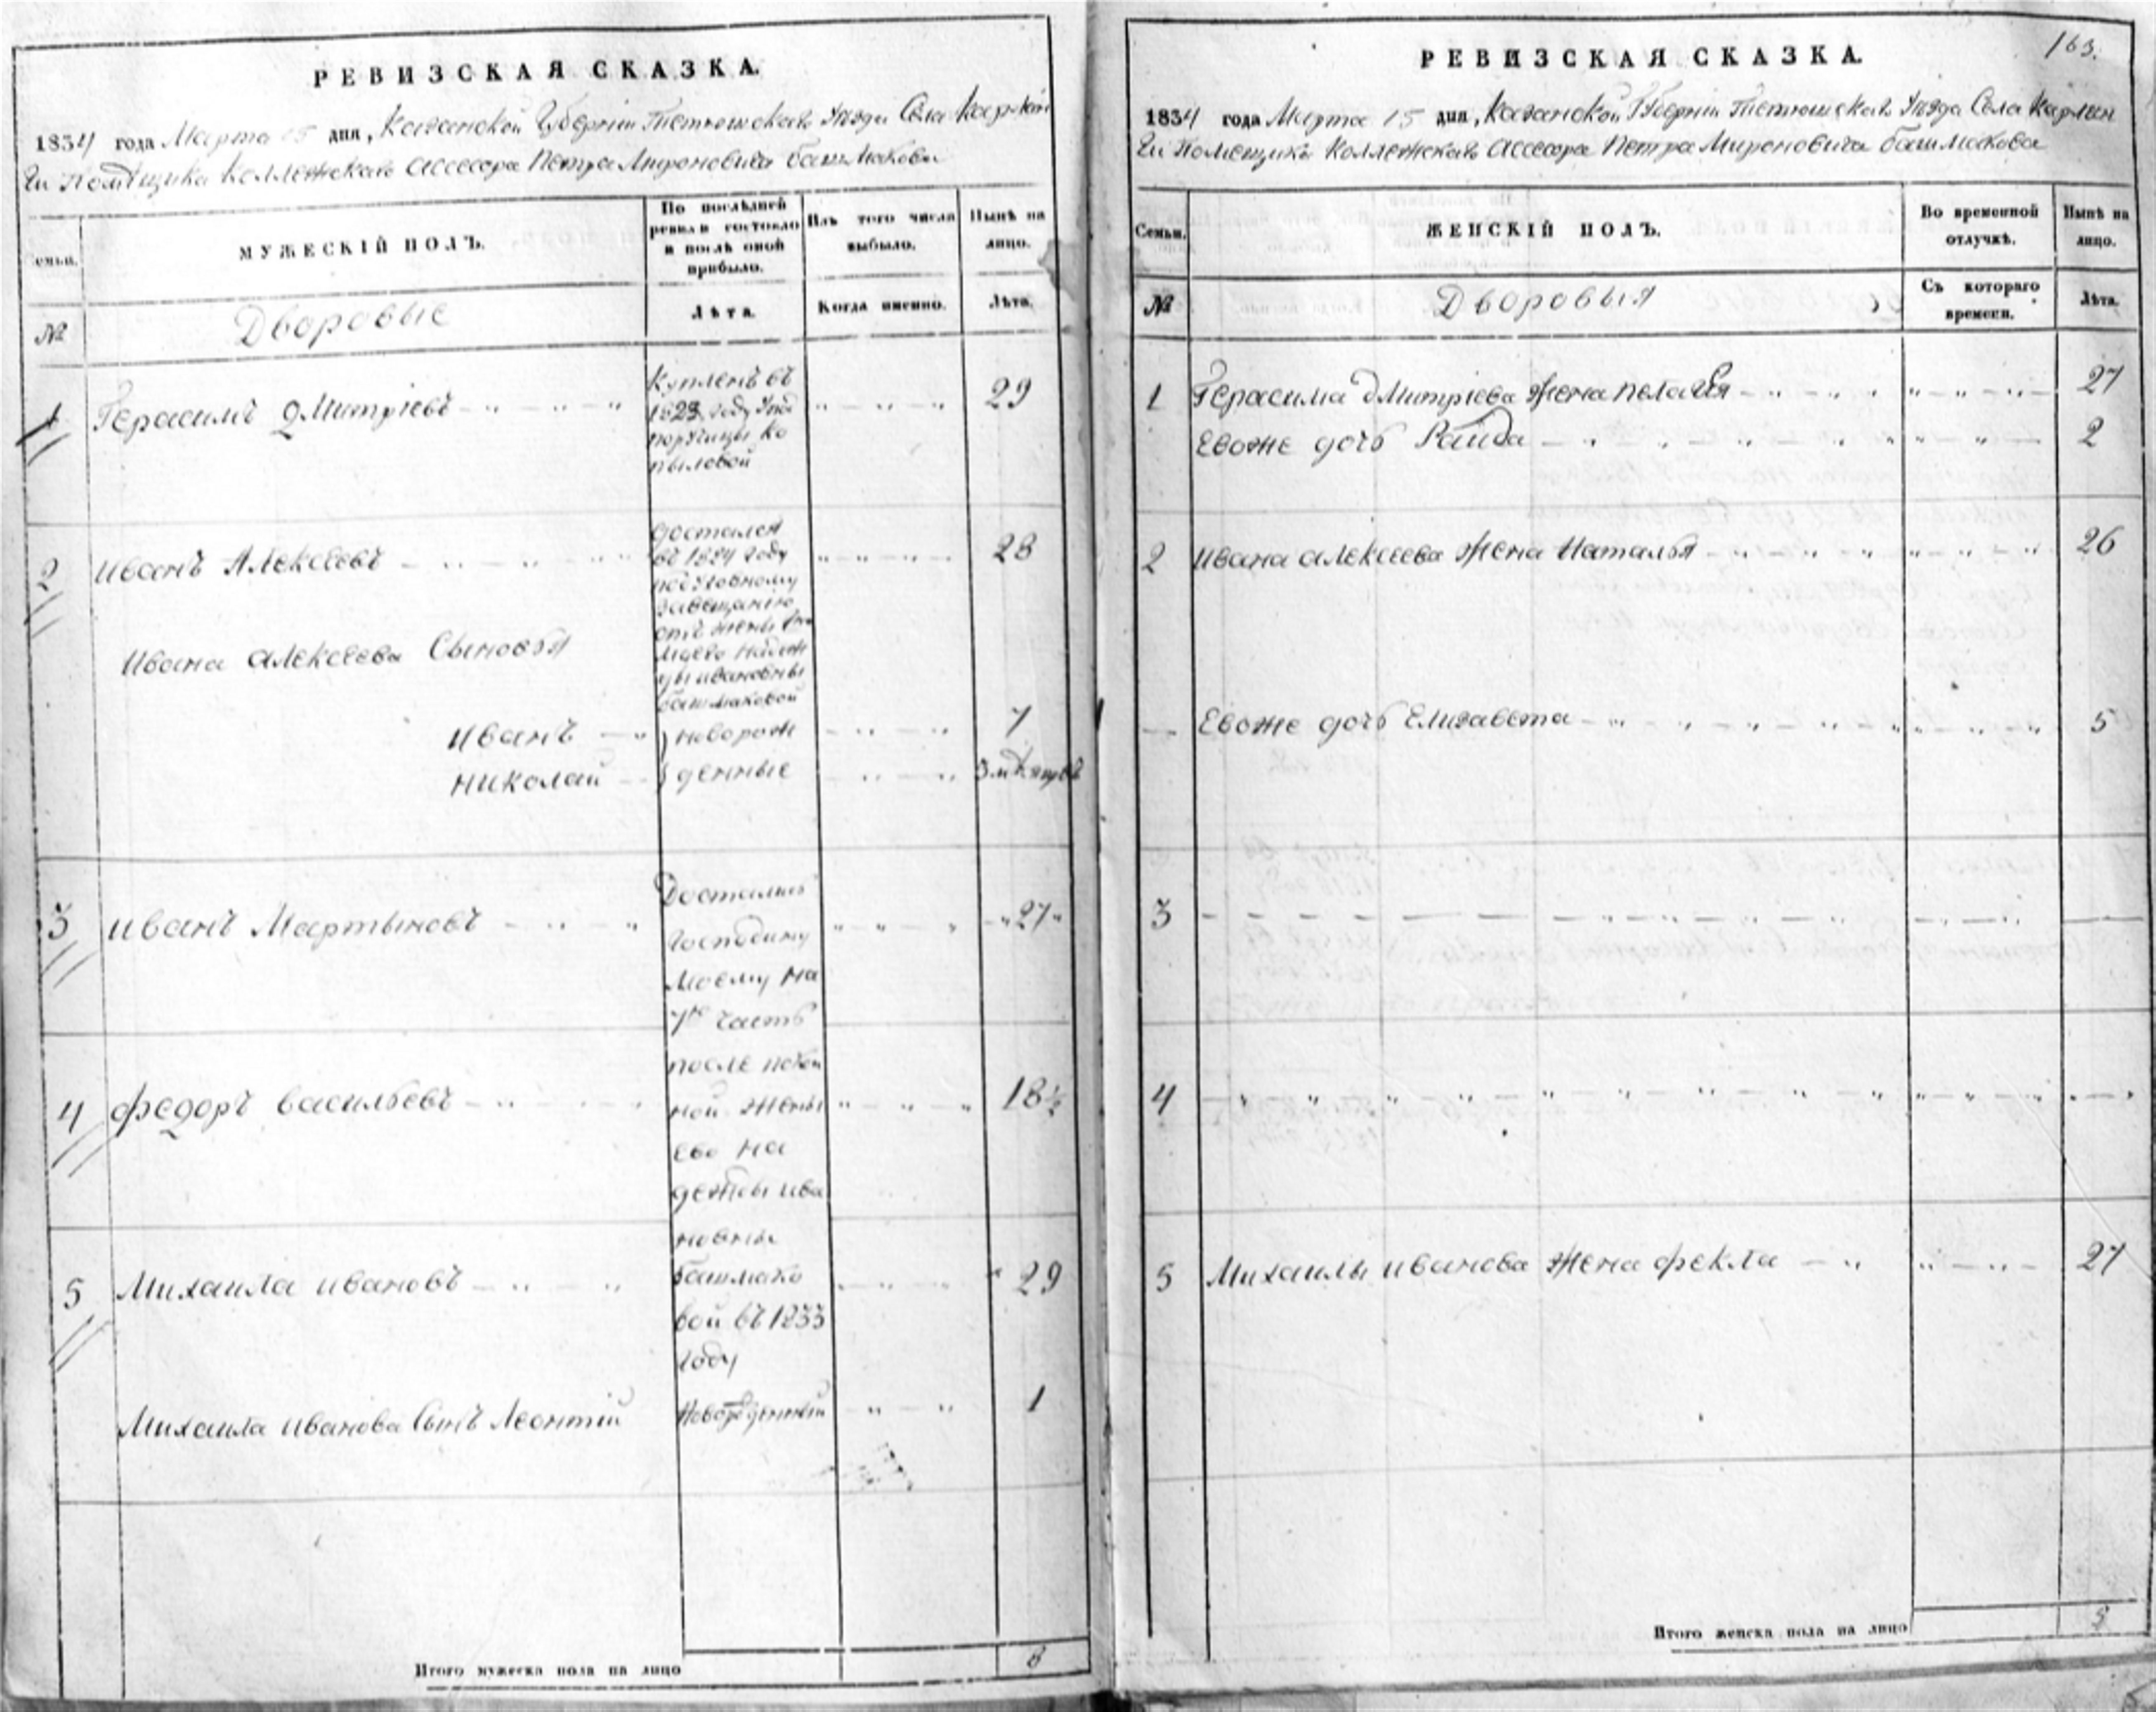 РЕВИЗСКАЯ СКАЗКА.
1834 года Марта 15 дня, Казанской Губернии Тетюшскаго Уезда Села
Помѣщика Коллежскаго Ассесора Петра Мироновича Башмакова
МУЖЕСКІЙ ПОЛЪ.
По послѣдней ревизіи состояло и послѣ оной прибыло.
Изъ того числа выбыло.
Нынѣ на лицо.
№
Дворовые
Лѣта.
Когда именно.
Лѣта.
1 Герасимъ Дмитріевъ 29
Купленъ въ
году у
поручицы Ко
пыловой
2 Иванъ Алексеевъ 28
достался
въ 1824 году
по духовному
завещанію
отъ жены
Надеж
ды Ивановны
Башмаковой
Ивана Алексеева Сыновья
Иванъ новорож 7
Николай денные 3 мѣсяцовъ
3 Иванъ Мартыновъ 27
Достались
Господину
Моему на
7ю часть
4 Федоръ Васильевъ 18½
после покой
ной жены
ево На
дежды Ива
5 Михаила Ивановъ 29
новны
Башмако
вой въ 1833
году
Михаила Иванова Сынъ Леонтій Новорожденный 1
Итого мужеска пола на лицо 8
163.
РЕВИЗСКАЯ СКАЗКА.
1834 года Марта 15 дня, Казанской Губерніи Тетюшскаго Уезда Села Кармы
ги Помещика Коллежскаго Ассесора Петра Мироновича Башмакова
Семьи.
ЖЕНСКІЙ ПОЛЪ.
Во временной отлучкѣ.
Нынѣ на лицо.
№
Дворовыя
Съ котораго времени.
Лѣта.
1 Герасима Дмитріева жена Пелагея 27
Евоже дочь Раида 2
2 Ивана Алексеева жена Наталья 26
Евоже дочь Елизавета 5
3
4
5 Михаилы Иванова жена Фекла 27
Итого женска пола на лицо 5